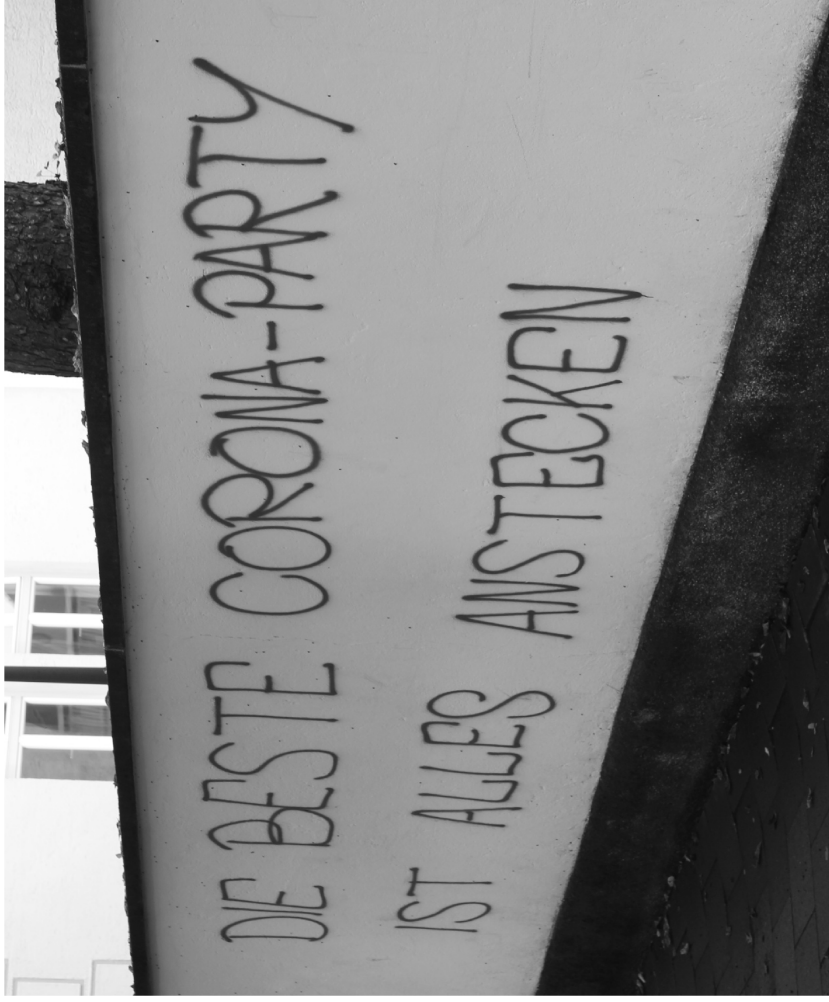 DIE BESTE CORONA-PARTY
IST ALLES ANSTECKEN